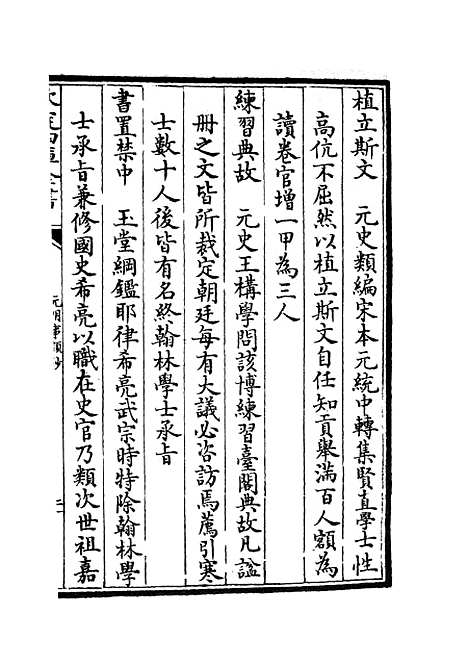 植立斯文　元史類編宋本元統中轉集賢直學士性
高伉不屈然以植立斯文自任知貢舉滿百人額為
讀卷官增一甲為三人
練習典故　元史王構學問該博練習臺閣典故凡諡
册之文皆所裁定朝廷每有大議必咨訪焉薦引寒
士數十人後皆有名終翰林學士承旨
書置禁中　玉堂綱鑑耶律希亮武宗時特除翰林學
士承旨兼修國史希亮以職在史官乃類次世祖嘉
元明事類鈔